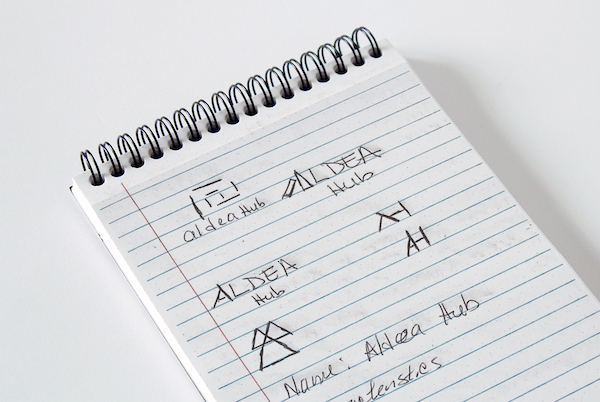 aldeaHub
ALDEA
Hub
AH
AH
ALDEA
Hub
Name: Aldea Hub